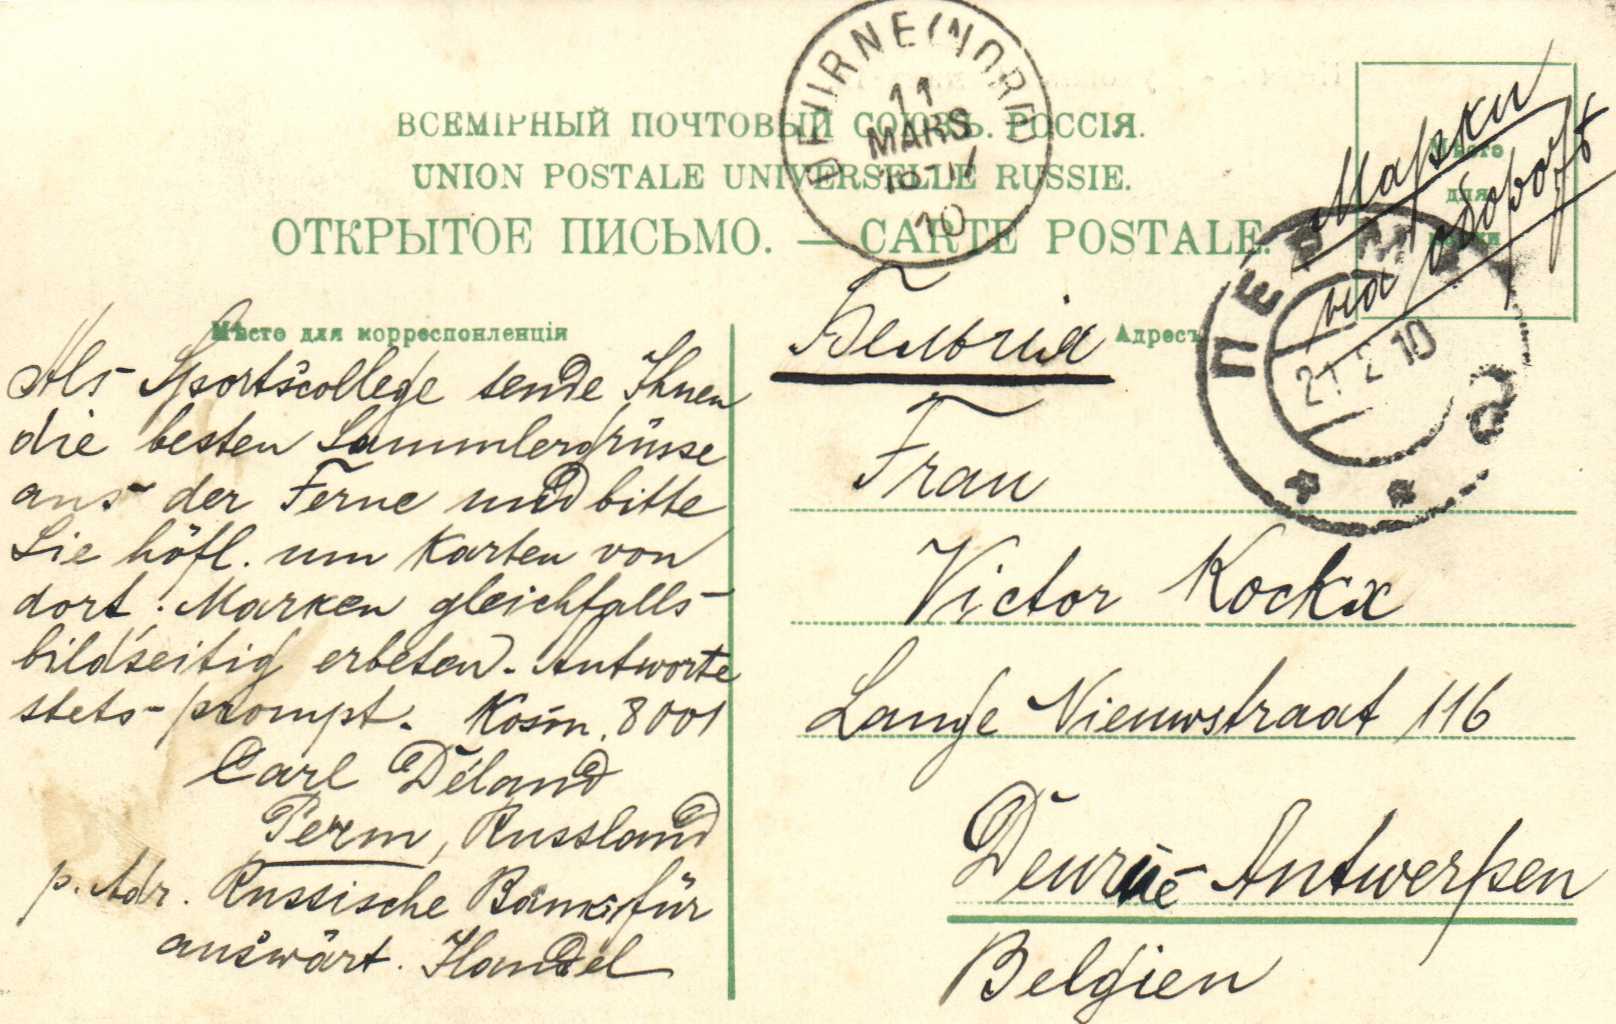 ВСЕМІРНЫЙ ПОЧТОВЫЙ СОЮЗЪ. РОССІЯ.
UNION POSTALE UNIVERSELLE RUSSIE.
ОТКРЫТОЕ ПИСЬМО. — CARTE POSTALE.
DEURNE (NORD)
11
MARS
10
Мѣсто для марки
Марки
на оборотѣ
ПЕРМЬ
21 2 10
Мѣсто для корреспонленціи
Als Sportscollege sende Ihnen
die besten Sammlergrüsse
aus der Ferne und bitte
Sie höfl. um Karten von
dort. Marken gleichfalls
bildseitig erbeten. Antworte
stets prompt. Kosm. 8001
Carl Déland
Perm, Russland
p. Adr. Russische Bank für
auswärt. Handel
Адресъ
Бельгія
Frau
Victor Kockx
Lange Nieuwstraat 116
Deurne-Antwerpen
Belgien